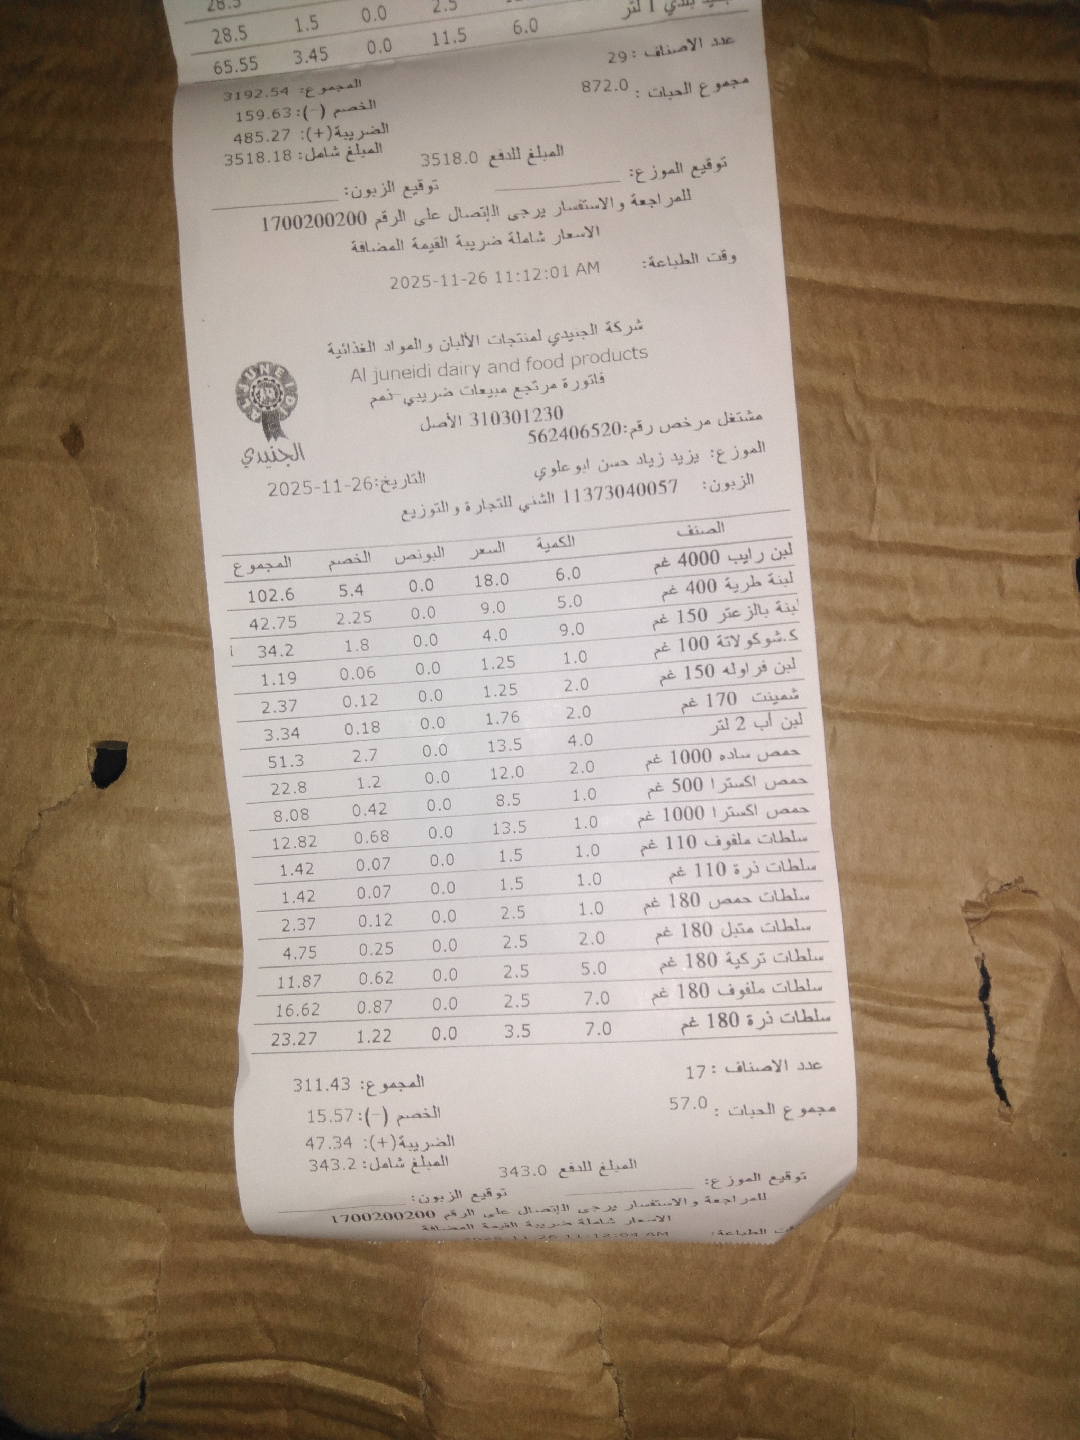 28.5 1.5 0.0 2.5
65.55 3.45 0.0 11.5 6.0 1 لتر
عدد الاصناف : 29
المجموع: 3192.54
مجموع الحبات : 872.0
الخصم (-): 159.63
الضريبة(+): 485.27
المبلغ شامل: 3518.18
المبلغ للدفع 3518.0
توقيع الموزع:
توقيع الزبون:
للمراجعة والاستفسار يرجى الإتصال على الرقم 1700200200
الاسعار شاملة ضريبة القيمة المضافة
وقت الطباعة: 2025-11-26 11:12:01 AM
شركة الجنيدي لمنتجات الألبان والمواد الغذائية
Al juneidi dairy and food products
فاتورة مرتجع مبيعات ضريبي-نمم
310301230 الأصل
مشتغل مرخص رقم:562406520
AL JUNEIDI
الجنيدي
الموزع: يزيد زياد حسن ابو علوي
التاريخ:2025-11-26
الزبون: 11373040057 الشني للتجارة والتوزيع
الصنف الكمية السعر البونص الخصم المجموع
لبن رايب 4000 غم 6.0 18.0 0.0 5.4 102.6
لبنة طرية 400 غم 5.0 9.0 0.0 2.25 42.75
لبنة بالزعتر 150 غم 9.0 4.0 0.0 1.8 34.2
ك.شوكولاتة 100 غم 1.0 1.25 0.0 0.06 1.19
لبن فراوله 150 غم 2.0 1.25 0.0 0.12 2.37
شمينت 170 غم 2.0 1.76 0.0 0.18 3.34
لبن أب 2 لتر 4.0 13.5 0.0 2.7 51.3
حمص ساده 1000 غم 2.0 12.0 0.0 1.2 22.8
حمص اكسترا 500 غم 1.0 8.5 0.0 0.42 8.08
حمص اكسترا 1000 غم 1.0 13.5 0.0 0.68 12.82
سلطات ملفوف 110 غم 1.0 1.5 0.0 0.07 1.42
سلطات ذرة 110 غم 1.0 1.5 0.0 0.07 1.42
سلطات حمص 180 غم 1.0 2.5 0.0 0.12 2.37
سلطات متبل 180 غم 2.0 2.5 0.0 0.25 4.75
سلطات تركية 180 غم 5.0 2.5 0.0 0.62 11.87
سلطات ملفوف 180 غم 7.0 2.5 0.0 0.87 16.62
سلطات ذرة 180 غم 7.0 3.5 0.0 1.22 23.27
عدد الاصناف : 17
المجموع: 311.43
مجموع الحبات : 57.0
الخصم (-): 15.57
الضريبة(+): 47.34
المبلغ شامل: 343.2
المبلغ للدفع 343.0
توقيع الموزع:
توقيع الزبون:
للمراجعة والاستفسار يرجى الإتصال على الرقم 1700200200
الاسعار شاملة ضريبة القيمة المضافة
الطباعة: 2025-11-26 11:12:04 AM